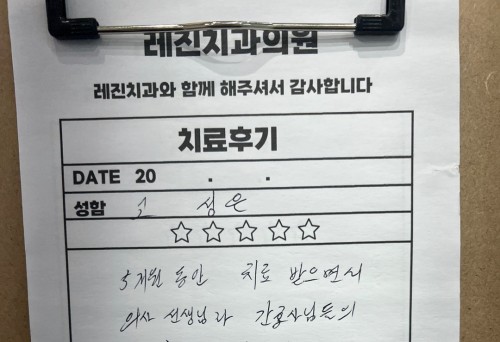 레진치과의원
레진치과와 함께 해주셔서 감사합니다
치료후기
DATE 20 . .
성함 고 성은
5개월 동안 치료 받으면서
의사 선생님과 간호사님들의